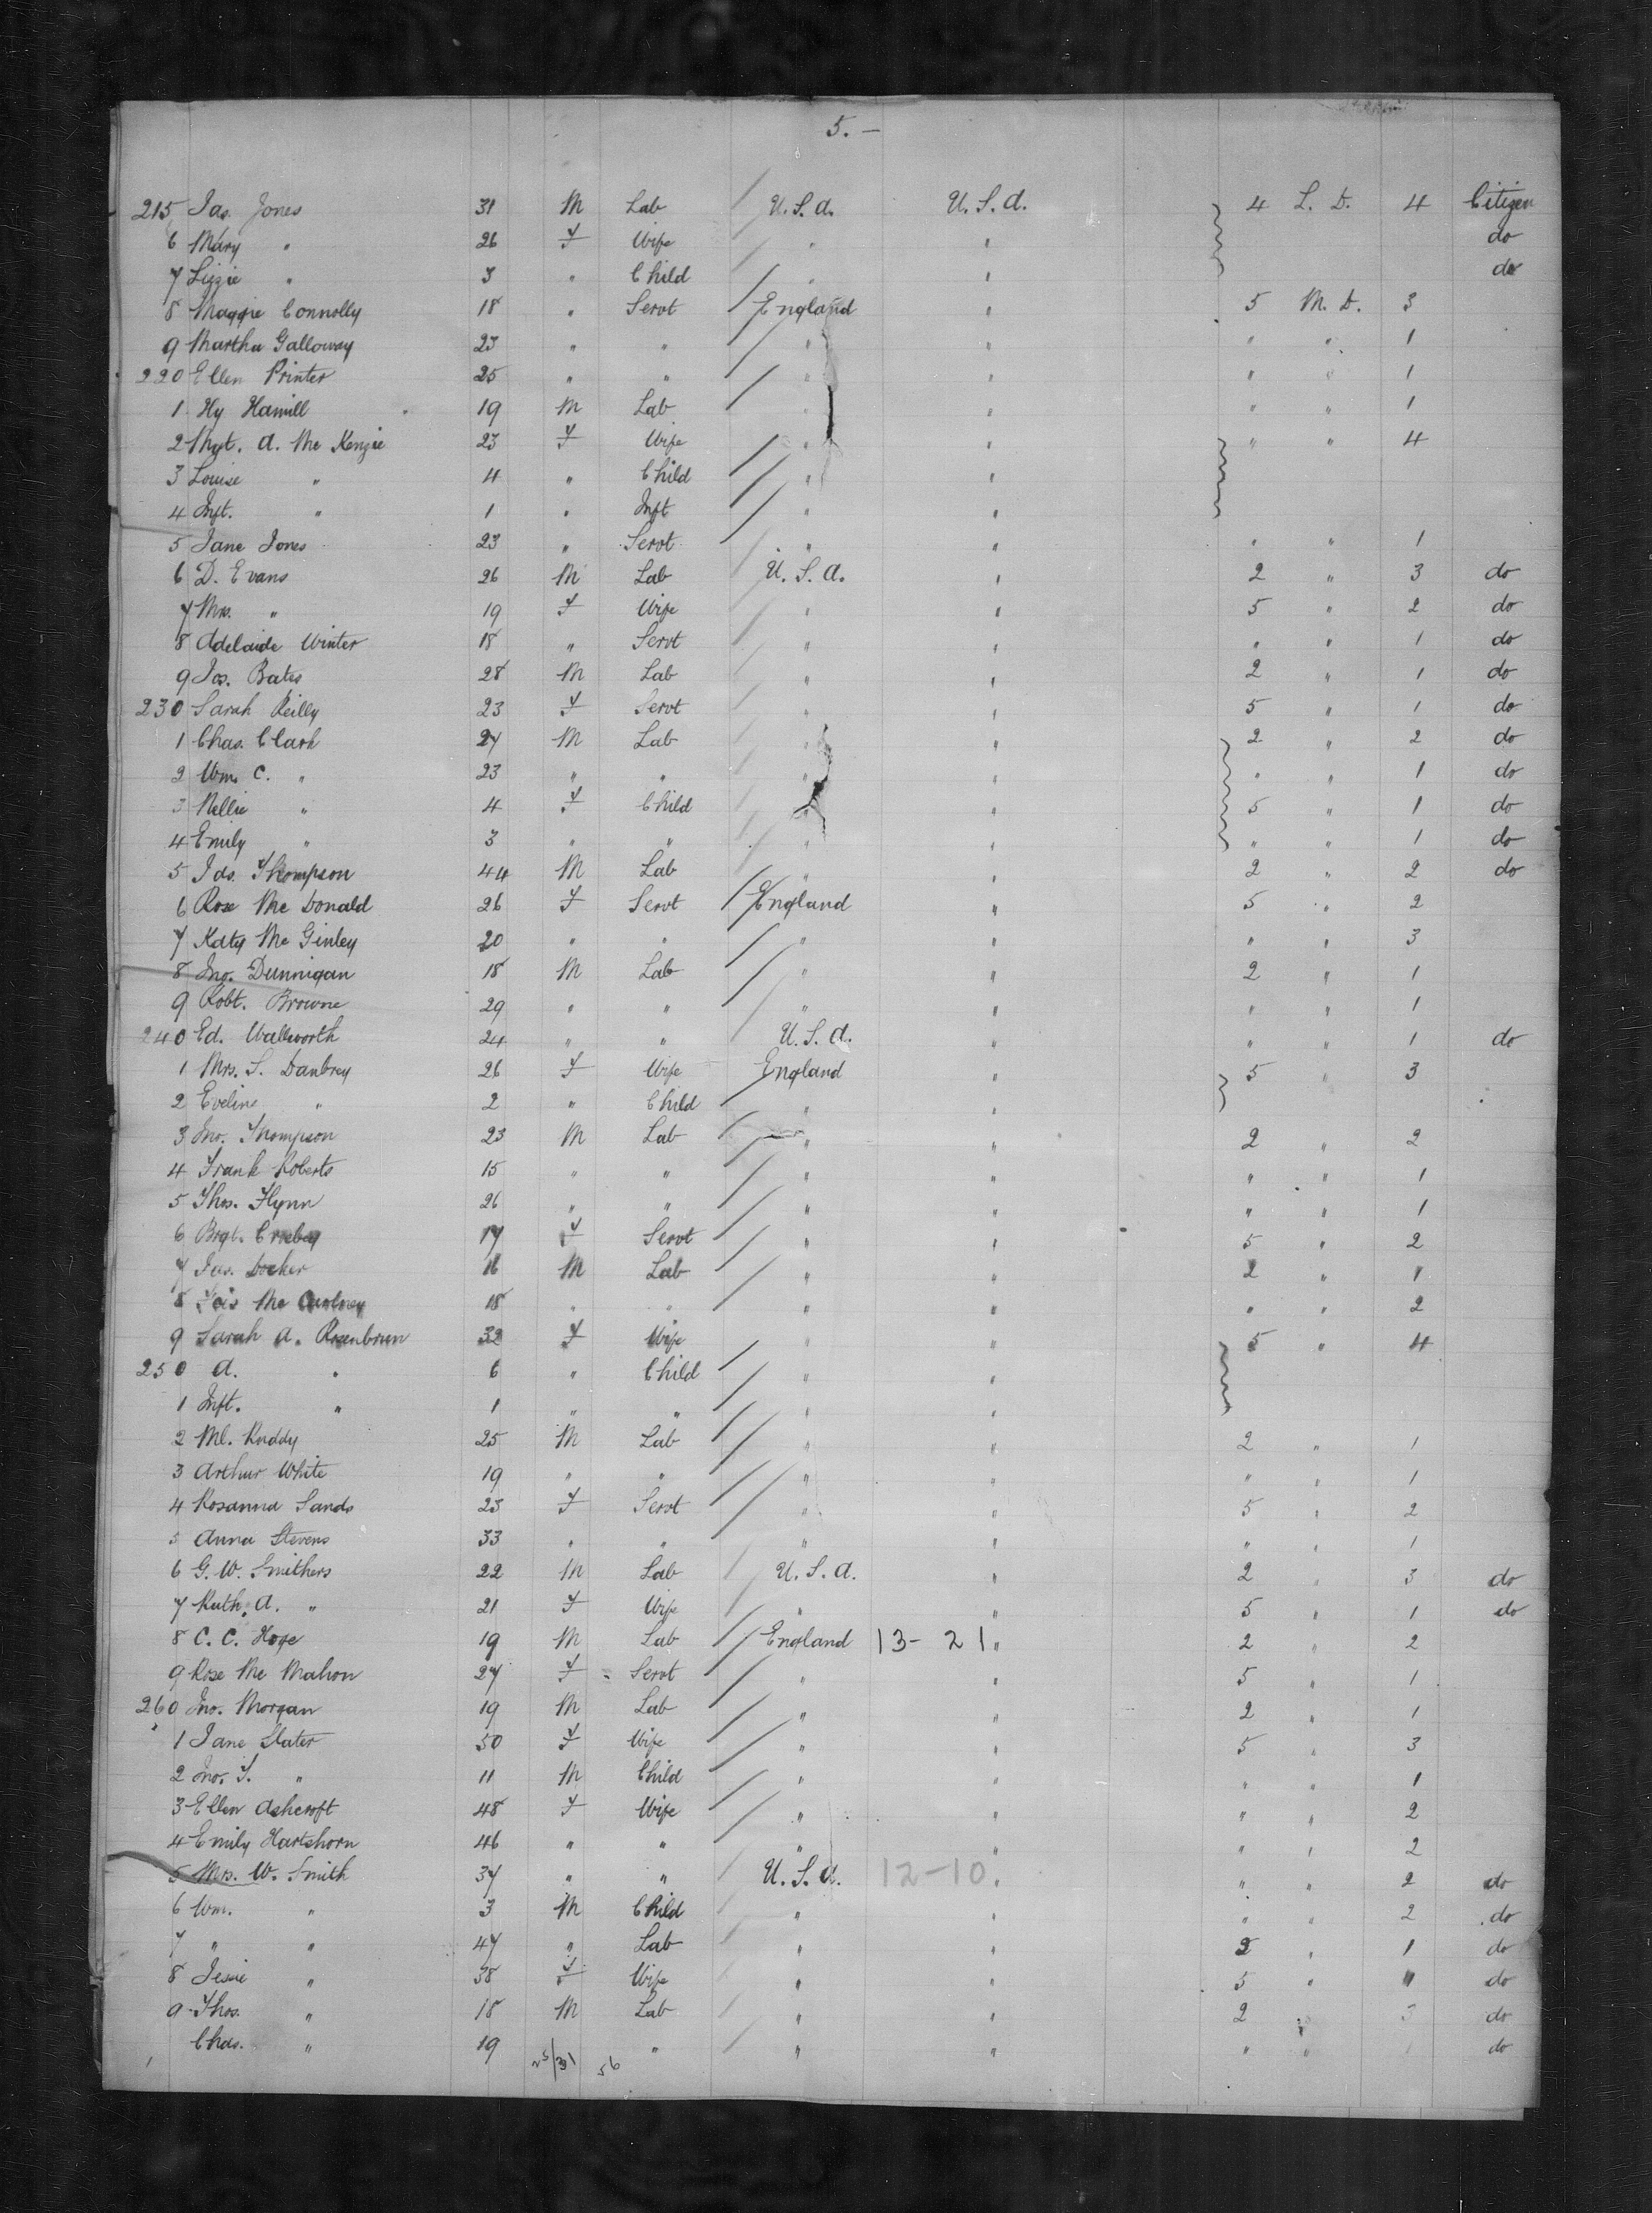 5. —
215 Jas. Jones 31 M Lab U.S.A. U.S.A. 4 L.D. 4 Citizen
6 Mary " 26 F Wife " " do
7 Lizzie " 3 " Child " " do
8 Maggie Connolly 18 " Servt England " 5 M.D. 3
9 Martha Galloway 23 " " " " " " 1
220 Ellen Printer 25 " " " " " " 1
1 Hy Hamill 19 M Lab " " " " 1
2 Mgt. A. McKenzie 23 F Wife " " " " 4
3 Louise " 4 " Child " "
4 Inft. " 1 " Inft " "
5 Jane Jones 23 " Servt " " " " 1
6 D. Evans 26 M Lab U.S.A. " 2 " 3 do
7 Mrs. " 19 F Wife " " 5 " 2 do
8 Adelaide Winter 18 " Servt " " " " 1 do
9 Jos. Bates 28 M Lab " " 2 " 1 do
230 Sarah Reilly 23 F Servt " " 5 " 1 do
1 Chas. Clark 27 M Lab " " 2 " 2 do
2 Wm. C. " 23 " " " " " " 1 do
3 Nellie " 4 F Child " " 5 " 1 do
4 Emily " 3 " " " " " " 1 do
5 Jas. Thompson 44 M Lab " " 2 " 2 do
6 Rose McDonald 26 F Servt England " 5 " 2
7 Katy McGinley 20 " " " " " " 3
8 Jno. Dunnigan 18 M Lab " " 2 " 1
9 Robt. Browne 29 " " " " " " 1
240 Ed. Wallworth 24 " " U.S.A. " " " 1 do
1 Mrs. S. Danbrey 26 F Wife England " 5 " 3
2 Eveline " 2 " Child " "
3 Jno. Thompson 23 M Lab " " 2 " 2
4 Frank Roberts 15 " " " " " " 1
5 Thos. Flynn 26 " " " " " " 1
6 Brgt. 17 F Servt " " 5 " 2
7 Jas. Docker M Lab " " 2 " 1
8 Mc 18 " " " " " " 2
9 Sarah A. Rosenbrun 32 F Wife " " 5 " 4
250 A. " 6 " Child " "
1 Inft. " 1 " " " "
2 Ml. Ruddy 25 M Lab " " 2 " 1
3 Arthur White 19 " " " " " " 1
4 Rosanna Sands 23 F Servt " " 5 " 2
5 Anna Stevens 33 " " " " " " 1
6 G.W. Smithers 22 M Lab U.S.A. " 2 " 3 do
7 Kath. A. " 21 F Wife " " 5 " 1 do
8 C.C. Hope 19 M Lab England 13-21 " 2 " 2
9 Rose McMahon 27 F Servt " " 5 " 1
260 Jno. Morgan 19 M Lab " " 2 " 1
1 Jane Slater 50 F Wife " " 5 " 3
2 Jno. T. " 11 M Child " " " " 1
3 Ellen Ashcroft 48 F Wife " " " " 2
4 Emily Hartshorn 46 " " " " " " 2
5 Mrs. W. Smith 37 " " U.S.A. 12-10 " " " 2 do
6 Wm. " 3 M Child " " " " 2 do
7 " " 47 " Lab " " 2 " 1 do
8 Jessie " 38 F Wife " " 5 " " do
9 Thos. " 18 M Lab " " 2 " 3 do
Chas. " 19 " " " " " do
25/31 56